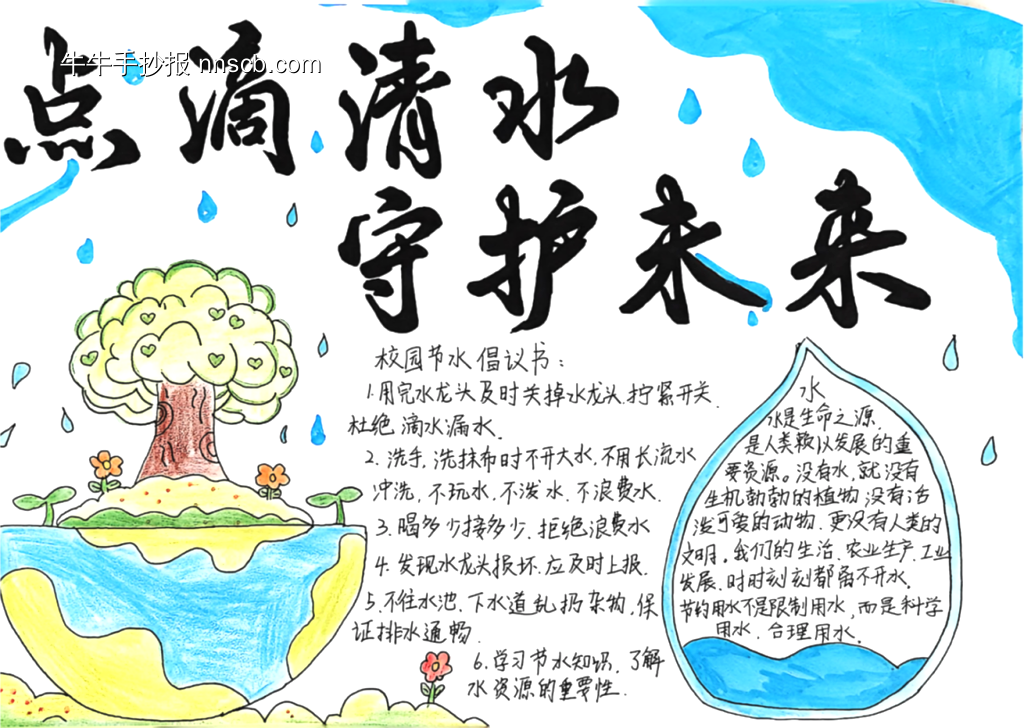 牛牛手抄报 nnscb.com
点滴清水
守护未来
校园节水倡议书:
1.用完水龙头及时关掉水龙头.拧紧开关.
杜绝滴水漏水.
2.洗手,洗抹布时不开大水.不用长流水
冲洗,不玩水.不泼水.不浪费水.
3.喝多少接多少.拒绝浪费水
4.发现水龙头损坏.应及时上报.
5.不往水池.下水道乱扔杂物.保
证排水通畅.
6.学习节水知识.了解
水资源的重要性.
水
水是生命之源.
是人类赖以发展的重
要资源。没有水,就没有
生机勃勃的植物.没有活
泼可爱的动物.更没有人类的
文明。我们的生活.农业生产.工业
发展.时时刻刻都离不开水.
节约用水不是限制用水,而是科学
用水.合理用水.